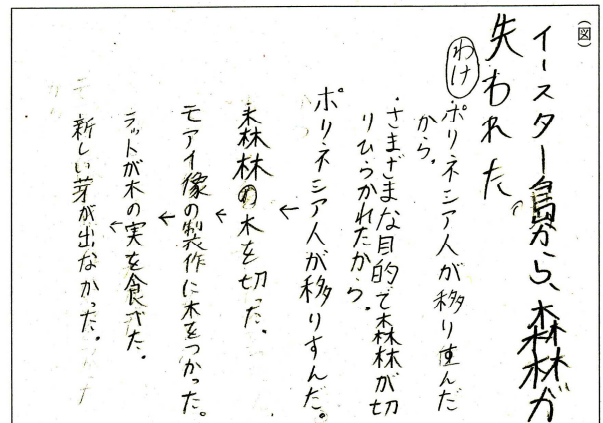 (図)
イースター島から、森林が
失われた。
わけ
ポリネシア人が移りすんだ
から。
・さまざまな目的で森林が切
りひらかれたから。
ポリネシア人が移りすんだ。
←
森林の木を切った。
←
モアイ像の製作に木をつかった。
←
ラットが木の実を食べた。
←
新しい芽が出なかった。